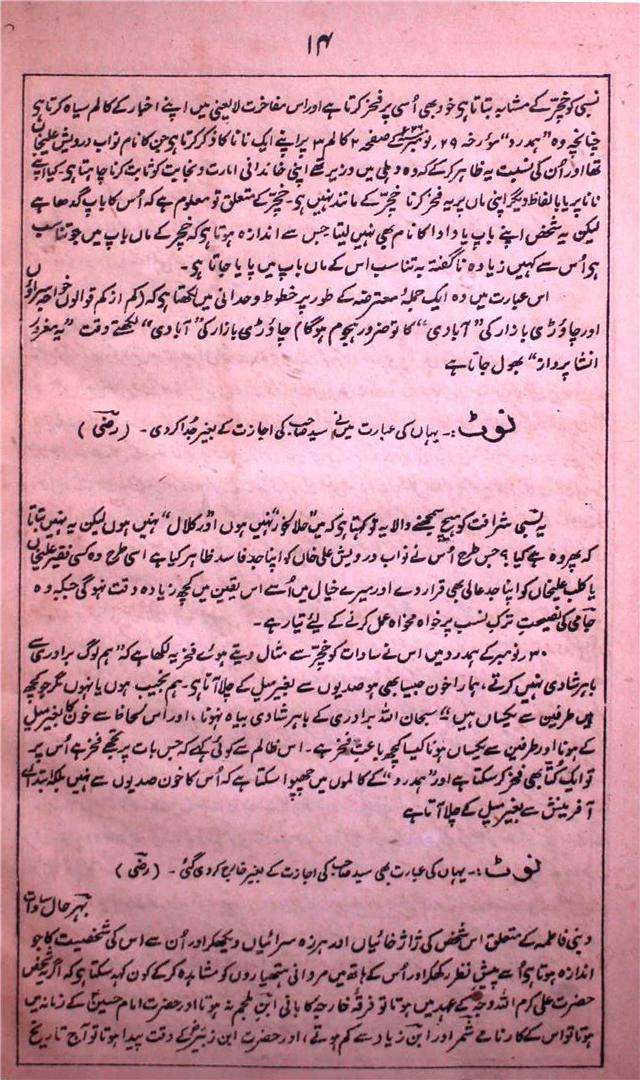 ۱۴
نسبی کو خچّر کے مشابہ بتاتا ہی خود بھی اُسی پر فخر کرتا ہے اور اس مفاخرت لایعنی میں اپنے اخبار کے کالم سیاہ کرتا ہی
چنانچہ وہ "ہمدرد" مؤرخہ ۲۹؍ نومبر کے صفحہ ۲ کالم ۳ پر اپنے ایک نانا کا ذکر کرتا ہی جن کا نام نواب درویش علیخاں
تھا اور اُن کی نسبت یہ ظاہر کرکے کہ وہ دہلی میں وزیر تھے اپنی خاندانی امارت و نجابت کو ثابت کرنا چاہتا ہی۔ کیا اپنے
نانا پر یا بالفاظ دیگر اپنی ماں پر یہ فخر کرنا خچّر کے مانند نہیں ہی۔ خچّر کے متعلق تو معلوم ہے کہ اُس کا باپ گدھا ہے
لیکن یہ شخص اپنے باپ یا دادا کا نام بھی نہیں لیتا جس سے اندازہ ہوتا ہی کہ خچّر کے ماں باپ میں جو تناسب
ہی اُس سے کہیں زیادہ ناگفتہ بہ تناسب اس کے ماں باپ میں پایا جاتا ہی۔
اس عبارت میں وہ ایک جملۂ معترضہ کے طور پر خطوط وحدانی میں لکھتا ہی کہ (کم از کم قوالوں
اور چاوڑی بازار کی "آبادی" کا تو ضرور ہجوم ہوگا) چاوڑی بازار کی "آبادی" لکھتے وقت "یہ مغرور
انشا پرداز" بھول جاتا ہے
نوٹ :۔ یہاں کی عبارت میں نے سید صاحب کی اجازت کے بغیر جُدا کر دی۔ (رضی)
یہ نسبی شرافت کو ہیچ سمجھنے والا یہ تو کہتا ہی کہ میں "حلالخور" نہیں ہوں اور "کلال" نہیں ہوں لیکن یہ نہیں بتاتا
کہ پھر وہ ہے کیا؟ جس طرح اُس نے نواب درویش علی خاں کو اپنا جد فاسد ظاہر کیا ہے اسی طرح وہ کسی فقیر علیخاں
یا کلب علیخاں کو اپنا جد عالی بھی قرار دے اور میرے خیال میں اُسے اس یقین میں کچھ زیادہ دقت نہوگی جبکہ وہ
جامی کی نصیحتِ ترک نسب پر خواہ مخواہ عمل کرنے کے لیئے تیار ہے۔
۳۰؍ نومبر کے ہمدرد میں اس نے سادات کو خچّر سے مثال دیتے ہوئے فخریہ لکھا ہے کہ "ہم لوگ برادری سے
باہر شادی نہیں کرتے، ہمارا خون جیسا بھی ہو صدیوں سے بغیر میل کے چلا آتا ہی۔ ہم نجیب ہوں یا نہوں مگر جو کچھ
ہیں طرفین سے یکساں ہیں" سبحان اللہ برادری کے باہر شادی بیاہ نہونا، اور اس لحاظ سے خون کا بغیر میل
کے ہونا اور طرفین سے یکساں ہونا کیا کچھ باعثِ فخر ہے۔ اس ظالم سے کوئی کہے کہ جس بات پر تجھے فخر ہے اُس پر
تو ایک کتا بھی فخر کر سکتا ہے اور "ہمدرد" کے کالموں میں چھپوا سکتا ہے کہ اُس کا خون صدیوں سے نہیں بلکہ ابتدائے
آفرینش سے بغیر میل کے چلا آتا ہے
نوٹ :۔ یہاں کی عبارت بھی سید صاحب کی اجازت کے بغیر خارج کر دی گئی۔ (رضی)
بہر حال سادات
و بنی فاطمہ کے متعلق اس شخص کی ژاژ خائیاں اور ہرزہ سرائیاں دیکھکر اور اُن سے اس کی شخصیت کا جو
اندازہ ہوتا ہی اُسے پیش نظر رکھکر اور اُس کے ہاتھ میں مروانی ہتھیاروں کو مشاہدہ کرکے کون کہہ سکتا ہی کہ اگر یہ شخص
حضرت علی کرم اللہ وجہہ کے عہد میں ہوتا تو فرقۂ خارجیہ کا بانی ابن ملجم نہ ہوتا اور حضرت امام حسینؓ کے زمانہ میں
ہوتا تو اس کے کارنامے شمر اور ابن زیاد سے کم ہوتے، اور حضرت ابن زبیرؓ کے وقت پیدا ہوتا تو آج تاریخ